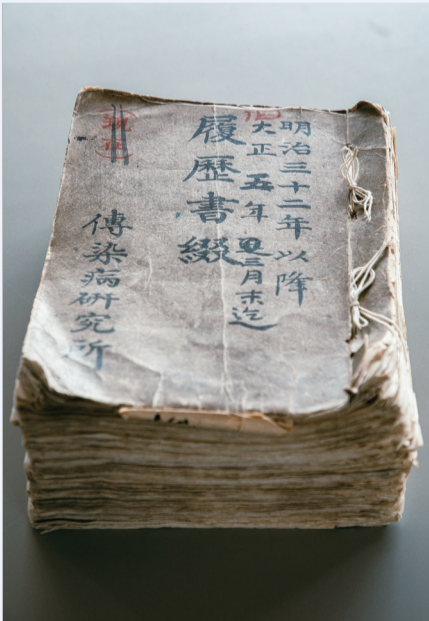 明治三十二年以降
大正五年三月末迄
履歴書綴
傳染病研究所